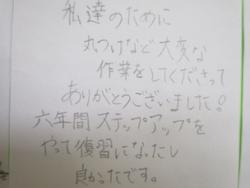 私達のために
丸つけなど大変な
作業をしてくださって
ありがとうございました!
六年間ステップアップを
やって復習になったし
良かったです。